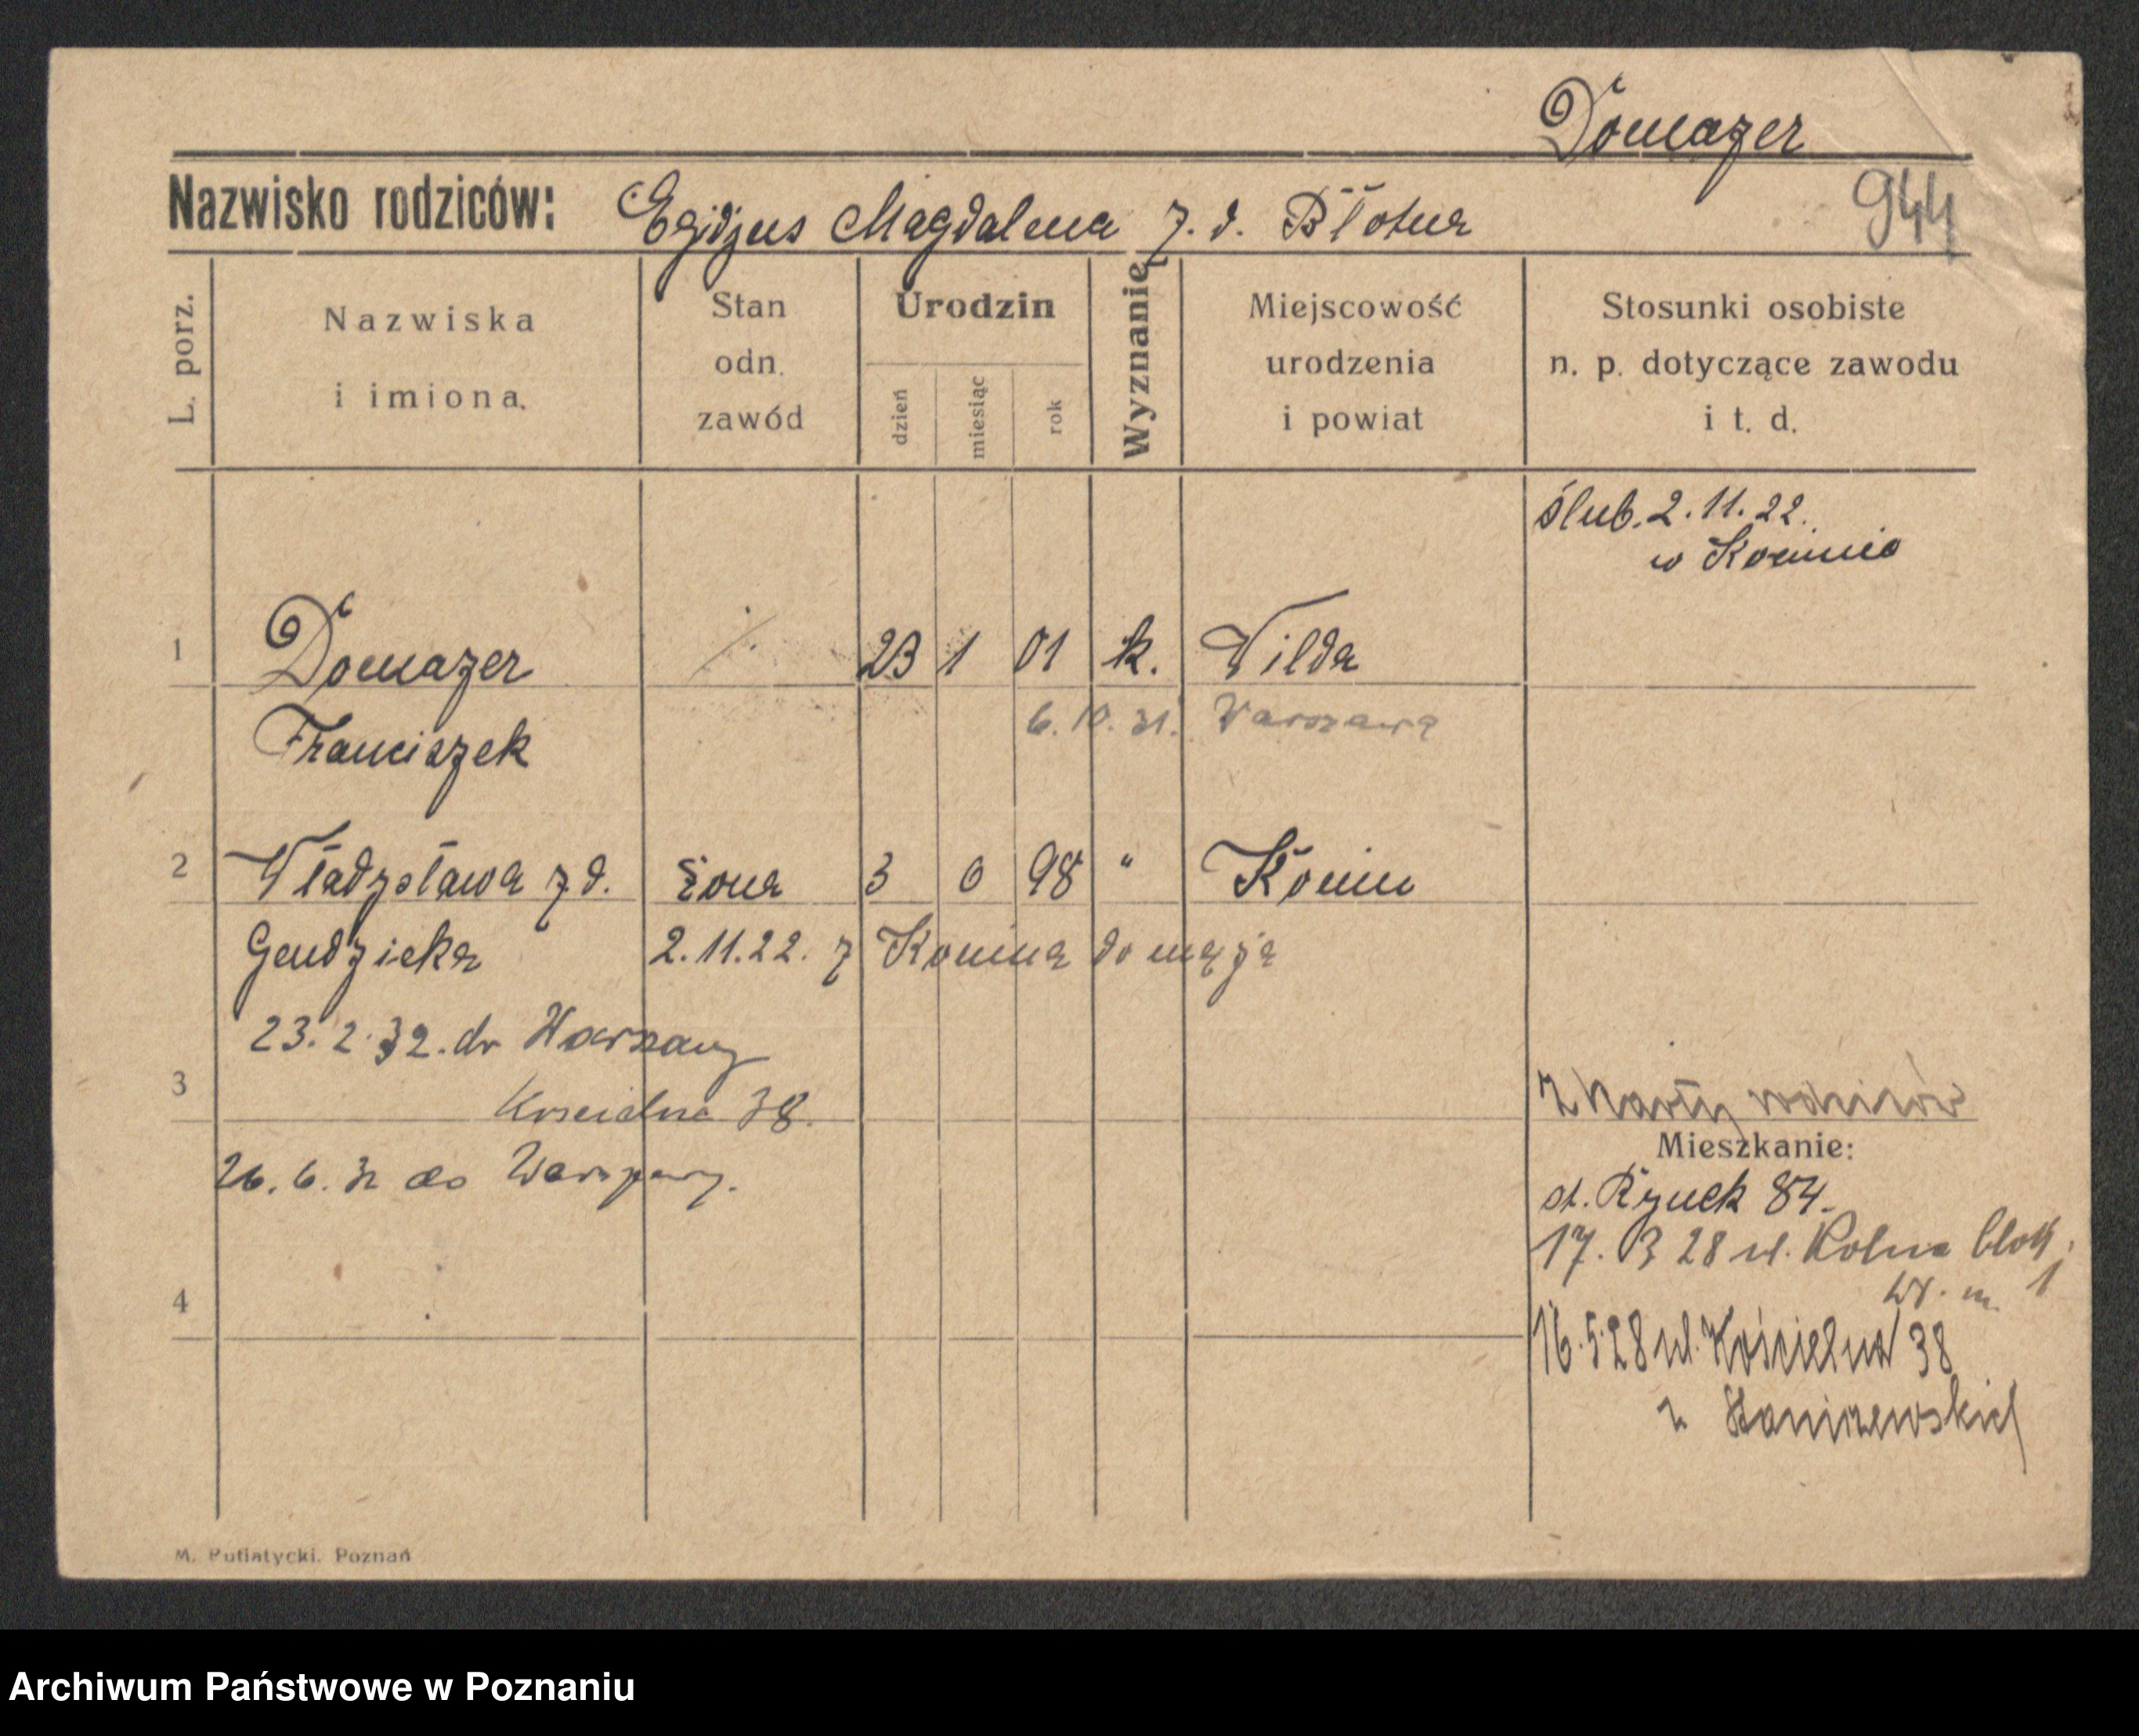 Domazer
Nazwisko rodziców: Egidjus Magdalena z. d. Błotna
944
L. porz.
Nazwiska
i imiona.
Stan
odn.
zawód
Urodzin
dzień
miesiąc
rok
Wyznanie
Miejscowość
urodzenia
i powiat
Stosunki osobiste
n. p. dotyczące zawodu
i t. d.
ślub. 2.11.22.
w Koninie
1 Domazer 23 1 01 k. Wilda
6.10.31. Warszawa
Franciszek
2 Władysława z d. żona 3 6 98 " Konin
Gendzicka 2.11.22. z Konina do męża
23.2.32. do Warszawy
3 Kościelna 38.
z karty rodziców
Mieszkanie:
26.6.32 do Warszawy.
st. Rynek 84.
17. 3 28 ul. Rolna blok
m. 1
4
16.5.28 ul. Kościelna 38
M. Putiatycki. Poznań
Archiwum Państwowe w Poznaniu